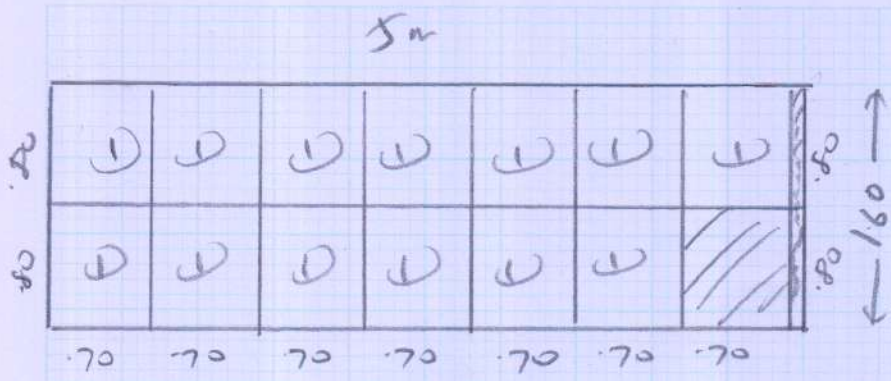 5 m
.80 1 1 1 1 1 1 1 .80
.80 1 1 1 1 1 1 .80
1.60
.70 .70 .70 .70 .70 .70 .70